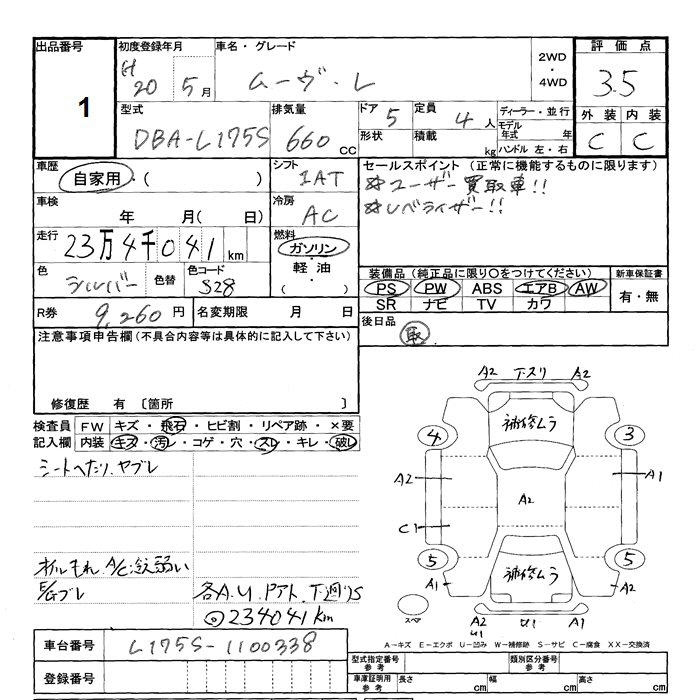 出品番号 初度登録年月 車名・グレード 2WD・4WD 評価点
1 H20 5月 ムーヴ・L 3.5
型式 排気量 ドア 5 定員 4人 ディーラー・並行 外装 内装
DBA-L175S 660cc 形状 積載 kg モデル年式 年 C C
ハンドル 左・右
車歴 自家用・( ) シフト IAT セールスポイント (正常に機能するものに限ります)
☆ユーザー買取車!!
☆レベライザー!!
車検 年 月( 日) 冷房 AC
走行 23万4千041km 燃料 ガソリン・軽油・( )
色 シルバー 色替 色コード S28
装備品 (純正品に限り○をつけてください) 新車保証書
PS PW ABS エアB AW 有・無
SR ナビ TV カワ
R券 9,260円 名変期限 月 日
後日品 取
注意事項申告欄 (不具合内容等は具体的に記入して下さい)
修復歴 有 〔箇所 〕
検査員記入欄 FW キズ・飛石・ヒビ割・リペア跡・×要
内装 キズ・汚レ・コゲ・穴・スレ・キレ・破レ
シートへたり、ヤブレ
オイルもれ A/C冷え弱い
E/Gブレ 各A.U.Pアト.下廻りS
◎234041km
A2 下スリ A2
補修ムラ
4 3
A2 A1
A2
C1
5 5
補修ムラ
A1 A2
スペア
A2 U1 A1
U1
A-キズ E-エクボ U-凹み W-補修跡 S-サビ C-腐食 XX-交換済
車台番号 L175S-1100338
登録番号
型式指定番号 参考 類別区分番号 参考
車庫証明用 参考 長さ cm 幅 cm 高さ cm